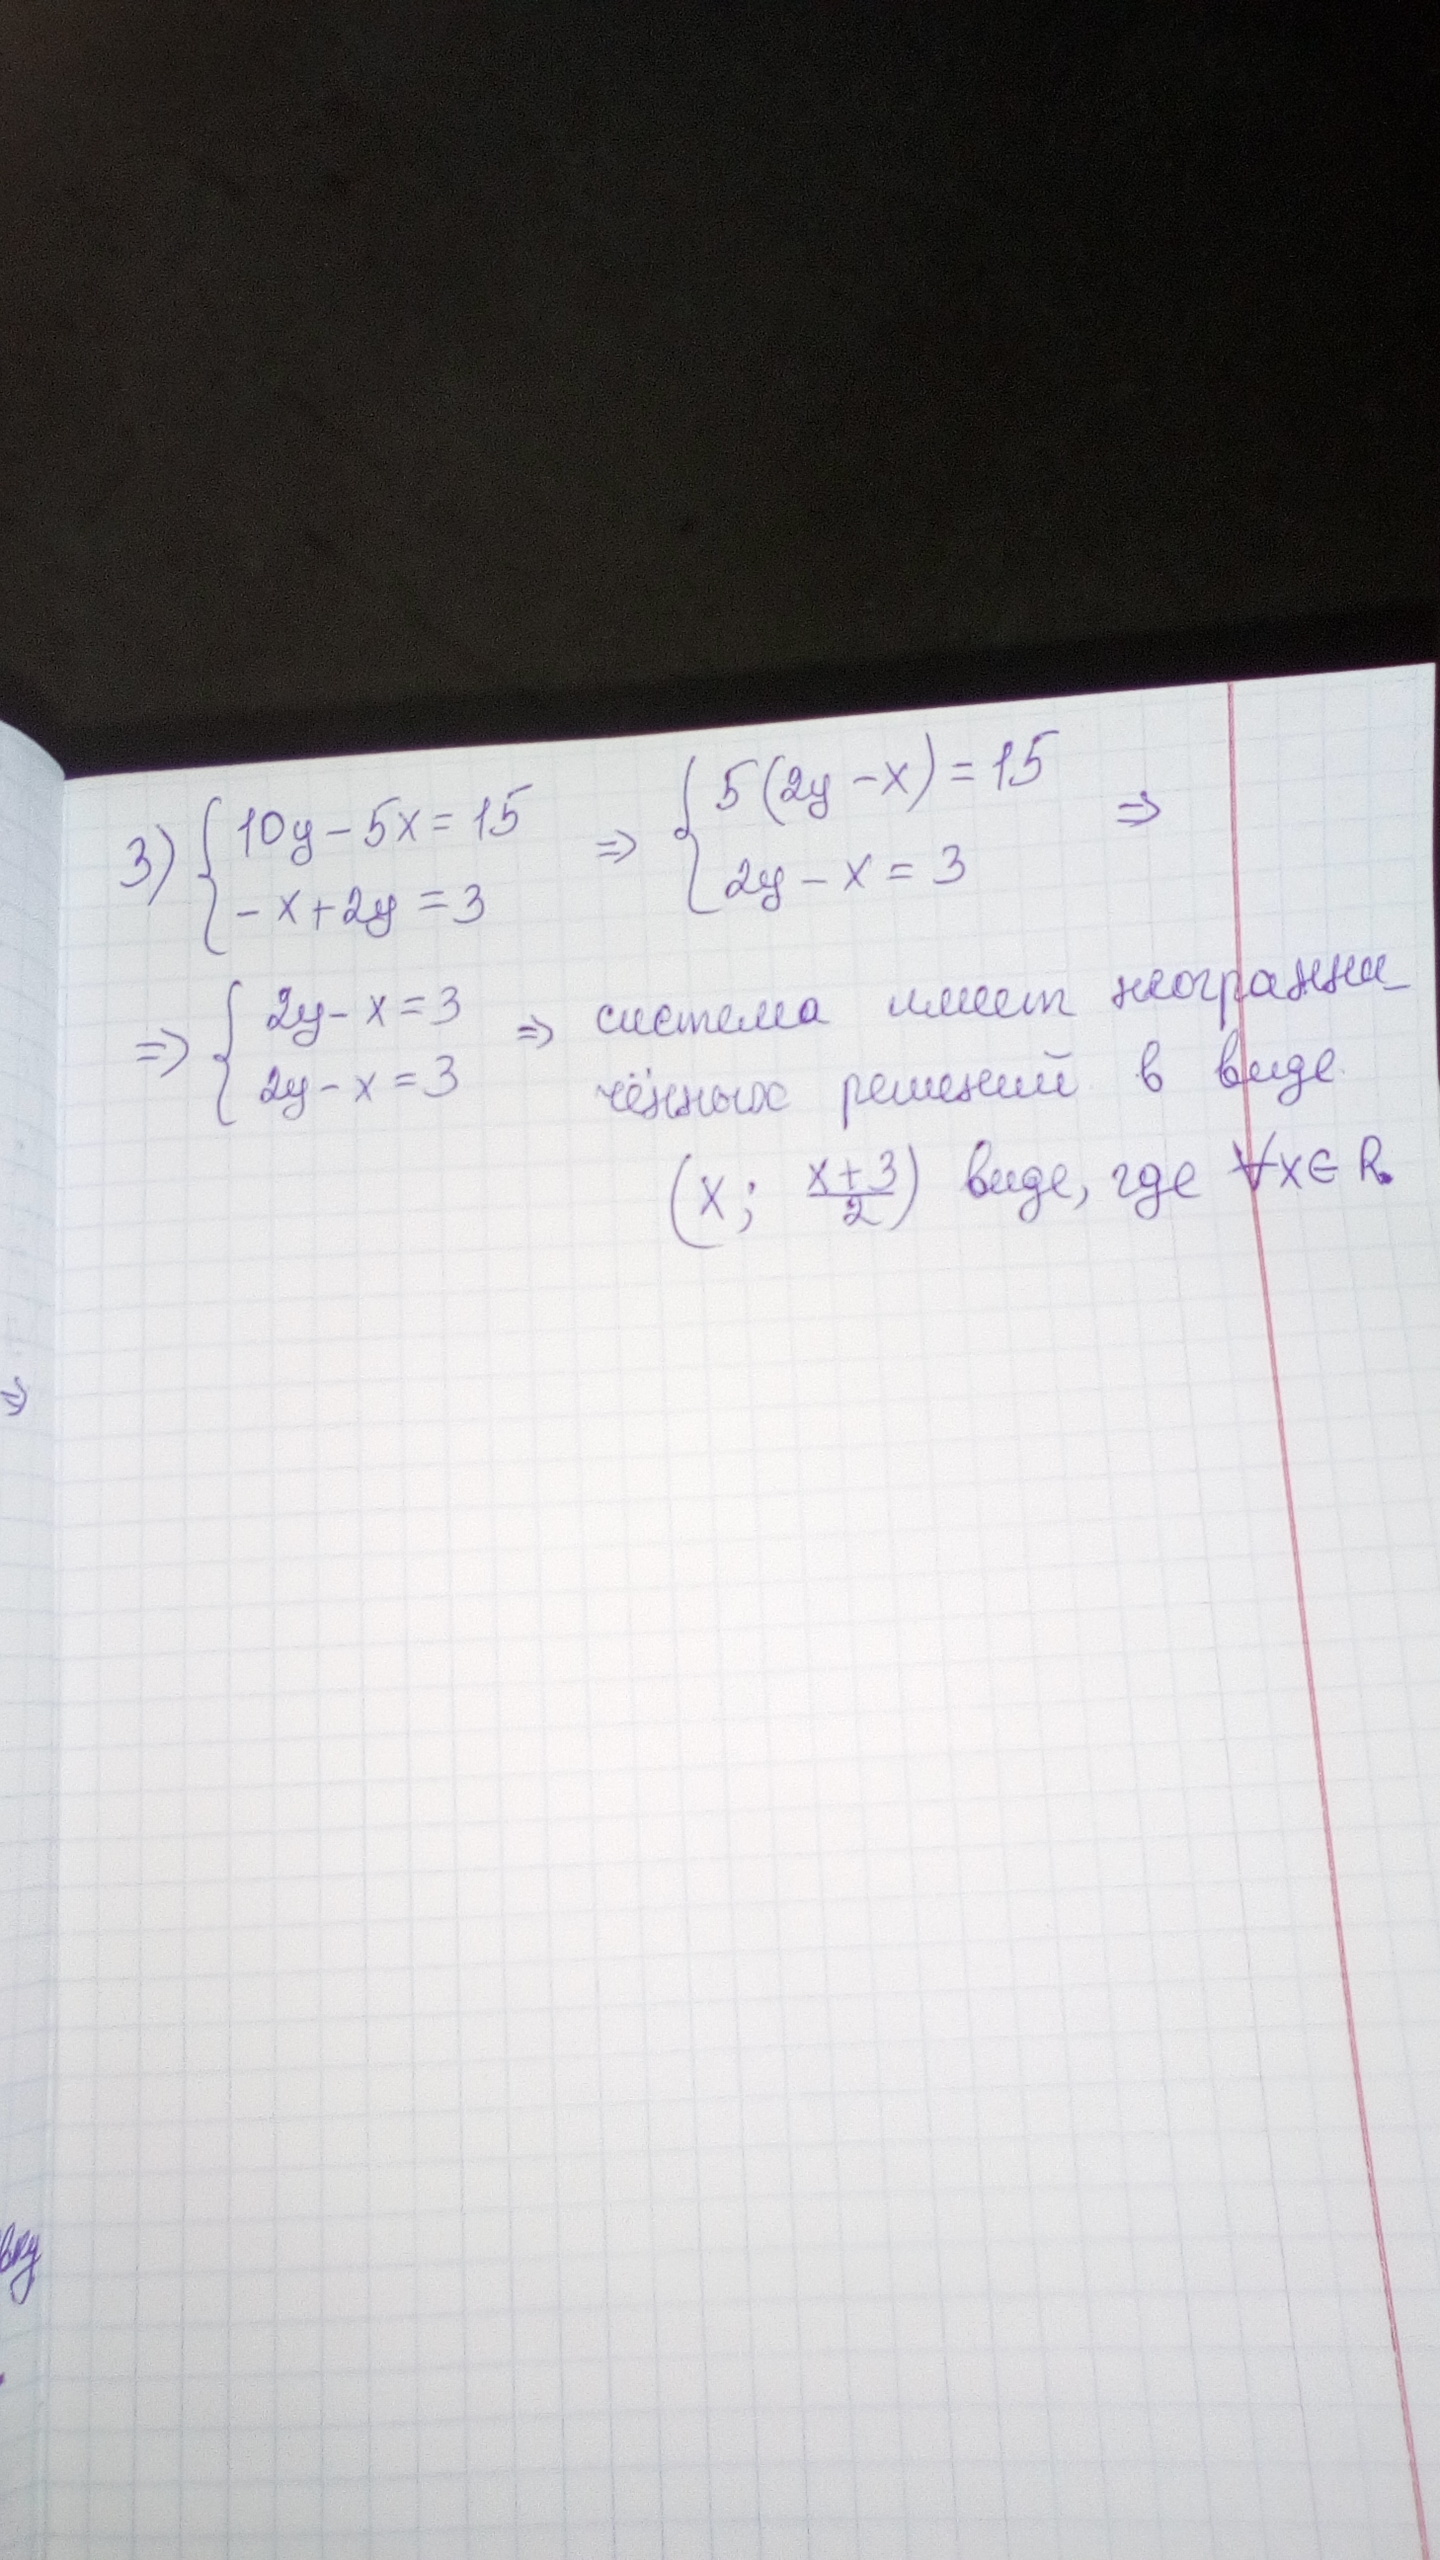 3) { 10y - 5x = 15 ⇒ { 5(2y - x) = 15 ⇒
-x + 2y = 3 2y - x = 3
⇒ { 2y - x = 3 ⇒ система имеет неограни-
2y - x = 3 чённых решений в виде
(x; (x+3)/2) виде, где ∀x∈R.
⇒